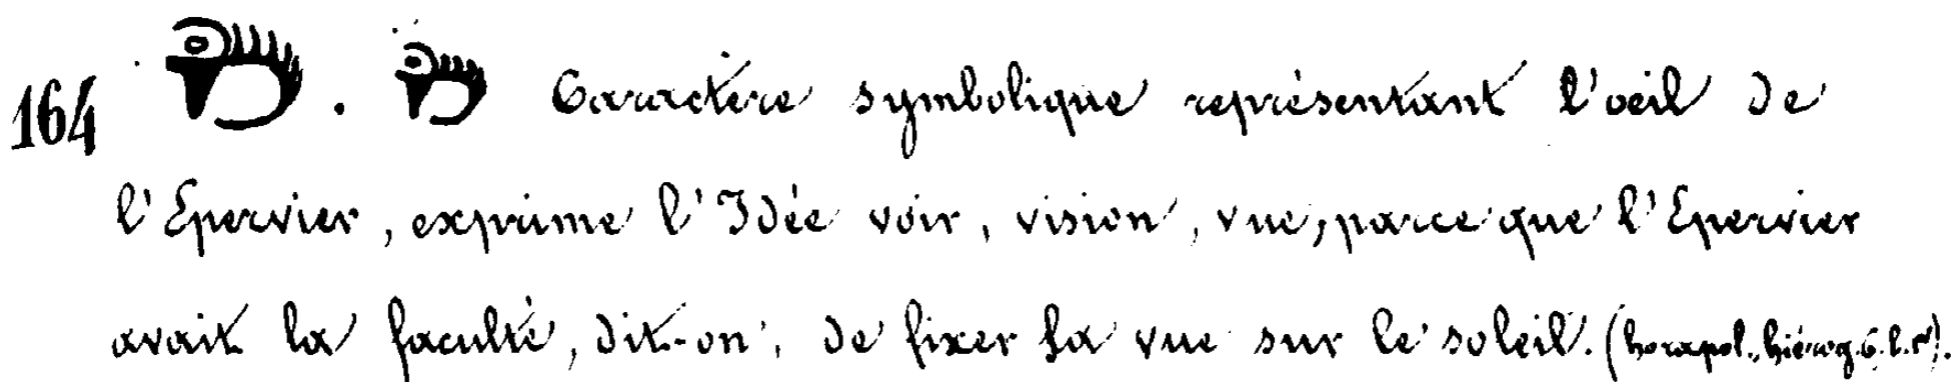 164 . Caractère symbolique représentant l'oeil de
l'Epervier, exprime l'Idée voir, vision, vue, parce que l'Epervier
avait la faculté, dit-on, de fixer sa vue sur le soleil. (horapol., hiérog. 6. l.